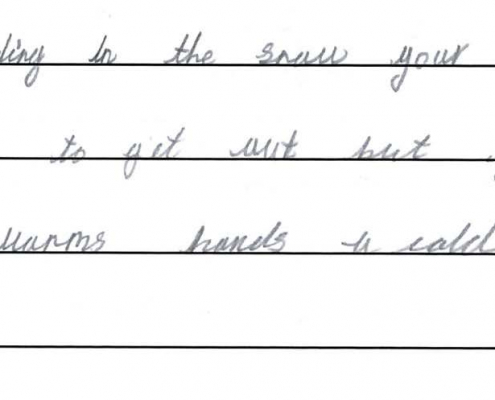 ling in the snow your
to get out but
warms hands a cold